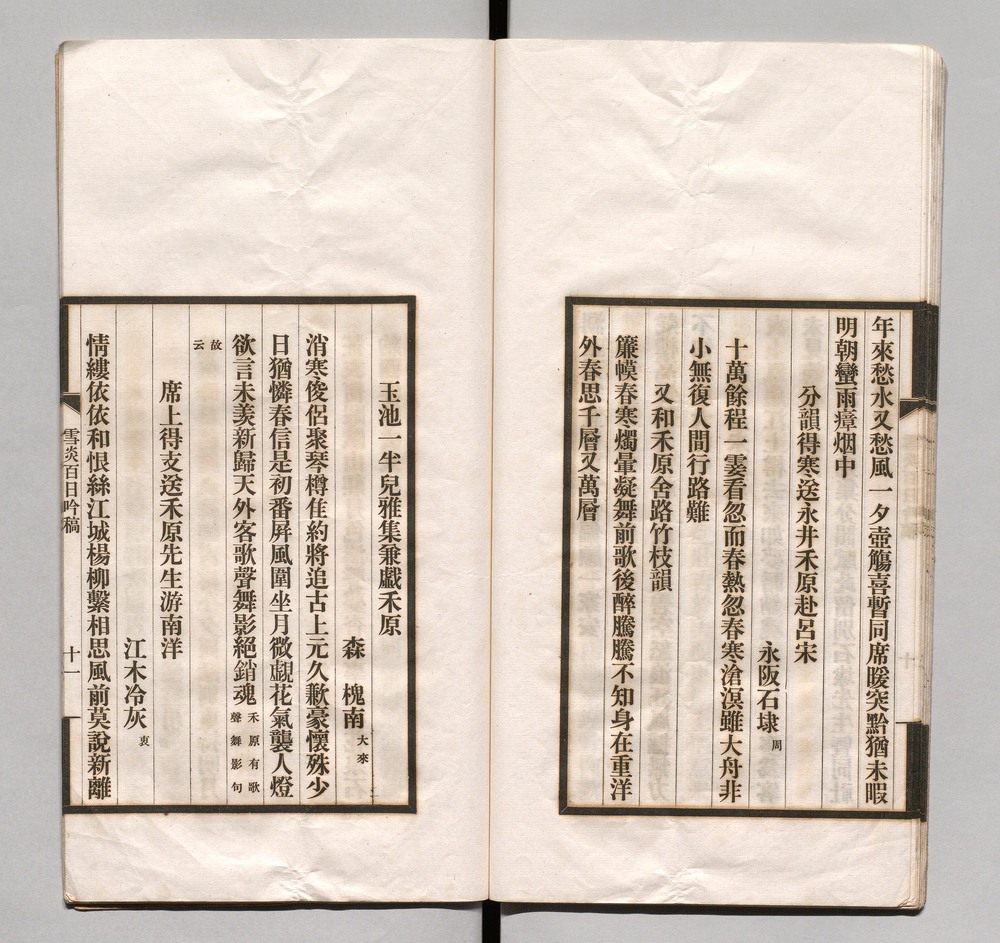 年來愁水又愁風一夕壺觴喜暫同席暖突黔猶未暇
明朝蠻雨瘴烟中
分韻得寒送永井禾原赴呂宋
永阪石埭周
十萬餘程一霎看忽而春熱忽春寒滄溟雖大舟非
小無復人間行路難
又和禾原舍路竹枝韻
簾幙春寒燭暈凝舞前歌後醉騰騰不知身在重洋
外春思千層又萬層
玉池一半兒雅集兼戲禾原
森槐南大來
消寒俊侶聚琴樽隹約將追古上元久歉豪懷殊少
日猶憐春信是初番屛風圍坐月微覷花氣襲人燈
欲言未羙新歸天外客歌聲舞影絕銷魂禾原有歌聲舞影句
故云
席上得支送禾原先生游南洋
江木冷灰衷
情縷依依和恨絲江城楊柳繫相思風前莫說新離
雪炎百日吟稿
十一